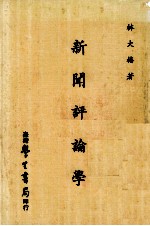 林大椿著
新聞評論學
臺灣學生書局印行